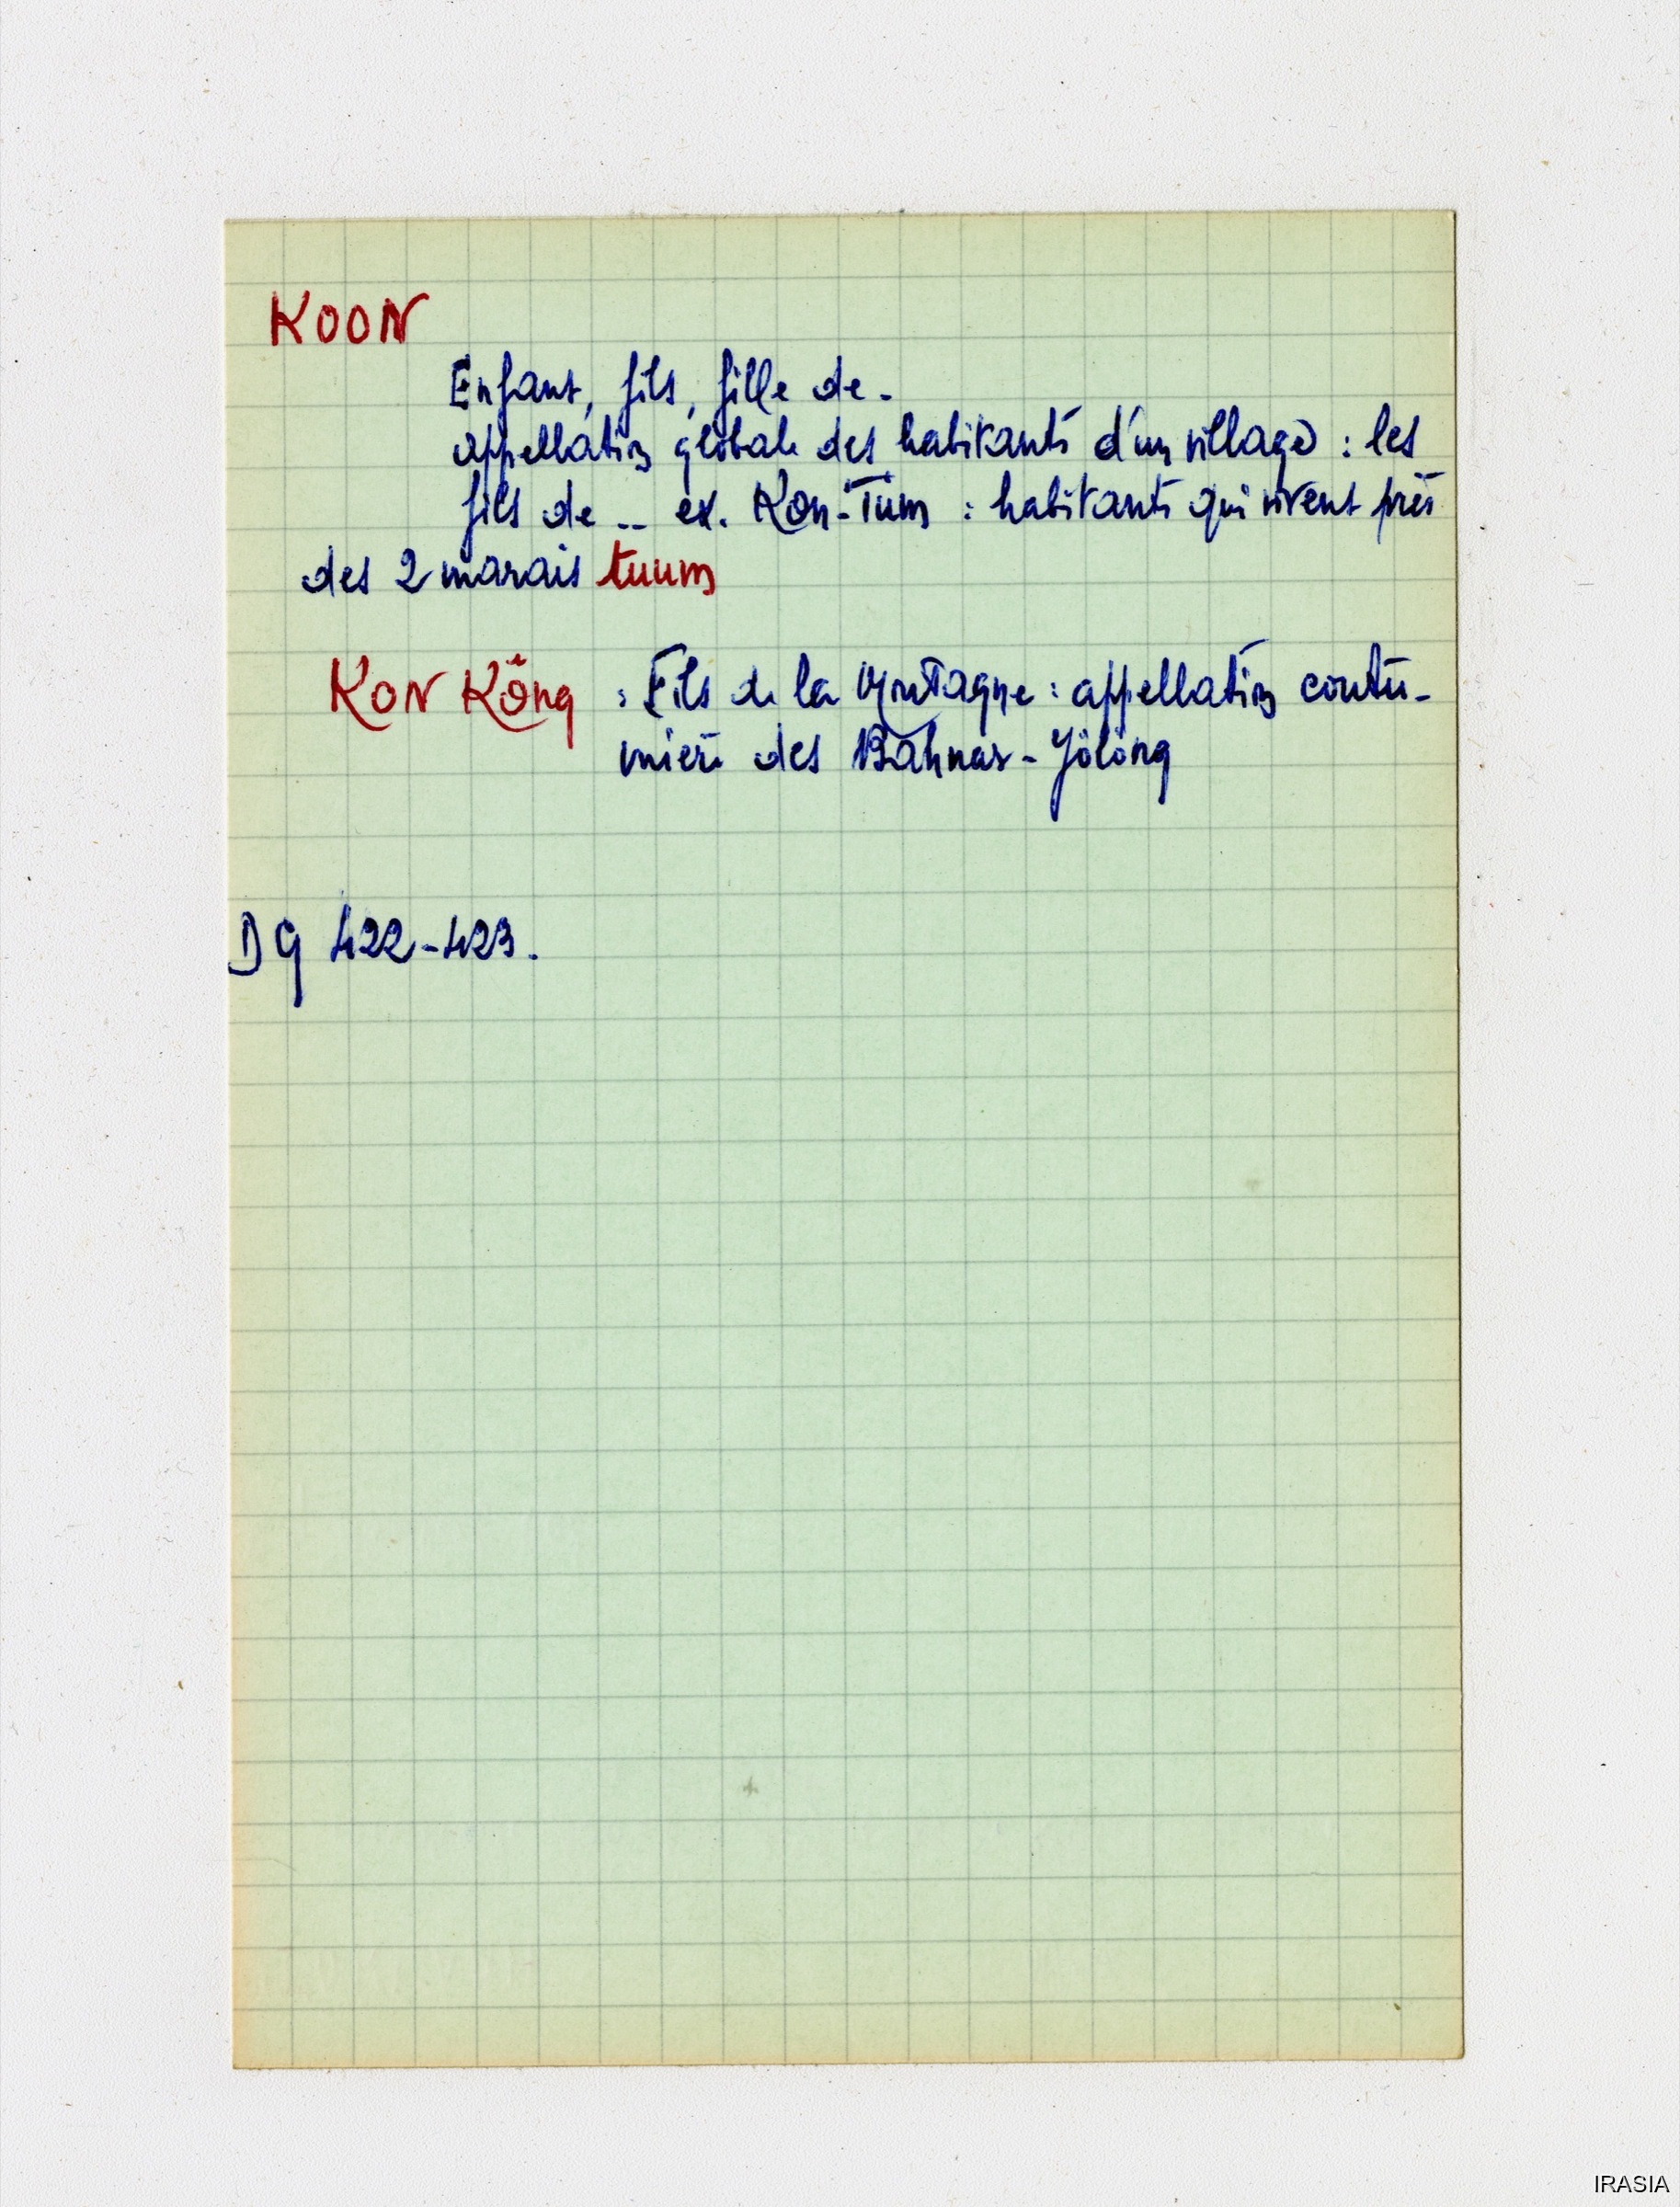 KOON
Enfant, fils, fille de -
appellation globale des habitants d'un village : les
fils de -- ex. Kon-Tum : habitants qui vivent près
des 2 marais tuum
KON Kông : Fils de la Montagne : appellation coutu-
mière des Bahnar - Jölöng
DG 422-423.
IRASIA